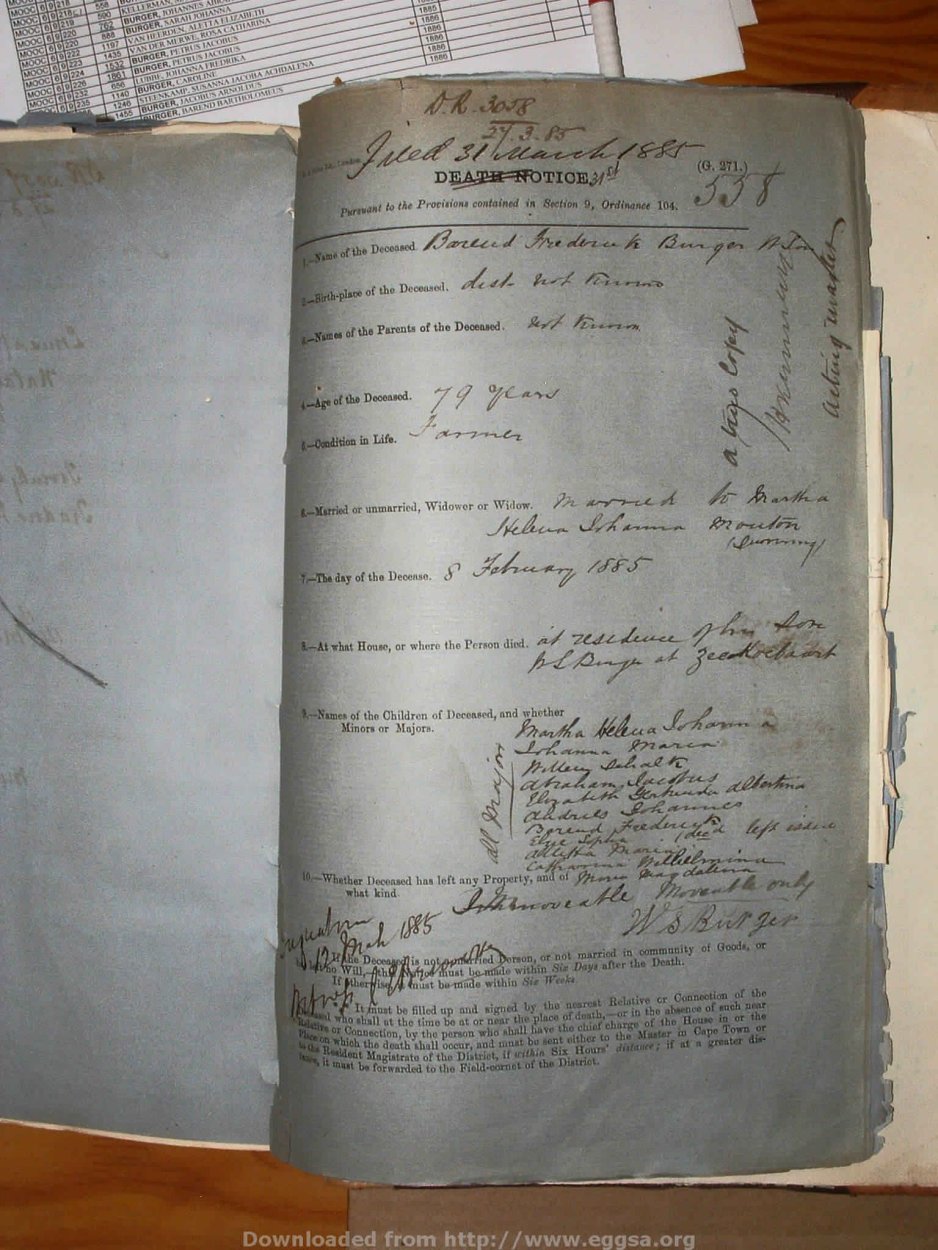 MOOC 6 9 218 558 BURGER, JOHANNES
MOOC 6 9 219 590 BURGER, SARAH JOHANNA
MOOC 6 9 220 762 VAN HEERDEN, ALETTA ELIZABETH
MOOC 6 9 220 888 VAN DER MERWE, ROSA CATHARINA
MOOC 6 9 222 1197 BURGER, PETRUS JACOBUS
1435 BURGER, PETRUS JACOBUS
1532 LUBBE, JOHANNA FREDRIKA
1861 BURGER, CAROLINE
656 STEENKAMP, SUSANNA JACOBA ACHDALENA
1140 BURGER, JACOBUS ARNOLDUS
1246 BURGER, BAREND BARTHOLOMEUS
1455
1885
1886
1886
1886
1886
D.R. 3058
27.3.85
Filed 31 March 1885
(G. 271.)
DEATH NOTICE 31st
558
Pursuant to the Provisions contained in Section 9, Ordinance 104.
1.—Name of the Deceased. Barend Frederick Burger W Son
2.—Birth-place of the Deceased. dist not known
3.—Names of the Parents of the Deceased. not known
4.—Age of the Deceased. 79 years
5.—Condition in Life. Farmer
a true Copy
acting master
6.—Married or unmarried, Widower or Widow. Married to Martha
Helena Johanna Mouton
(Surviving)
7.—The day of the Decease. 8 February 1885
8.—At what House, or where the Person died. at residence of his Son
W S Burger at Zeekoevaart
9.—Names of the Children of Deceased, and whether
Minors or Majors.
All Majors
Martha Helena Johanna
Johanna Maria
Willem Schalk
Abraham Jacobus
Elizabeth Gertruida Albertina
Andries Johannes
Barend Frederick
Elsie Sophia (dec'd left issue
Aletta Maria
Catharina Wilhelmina
Maria Magdalena
10.—Whether Deceased has left any Property, and of
what kind.
Immoveable Moveable only
W S Burger
12 March 1885
If the Deceased is not a married Person, or not married in community of Goods, or
has left no Will, this Notice must be made within Six Days after the Death.
If otherwise, it must be made within Six Weeks.
It must be filled up and signed by the nearest Relative or Connection of the
Deceased who shall at the time be at or near the place of death,—or in the absence of such near
Relative or Connection, by the person who shall have the chief charge of the House in or the
Place on which the death shall occur, and must be sent either to the Master in Cape Town or
to the Resident Magistrate of the District, if within Six Hours' distance; if at a greater dis-
tance, it must be forwarded to the Field-cornet of the District.
Downloaded from http://www.eggsa.org